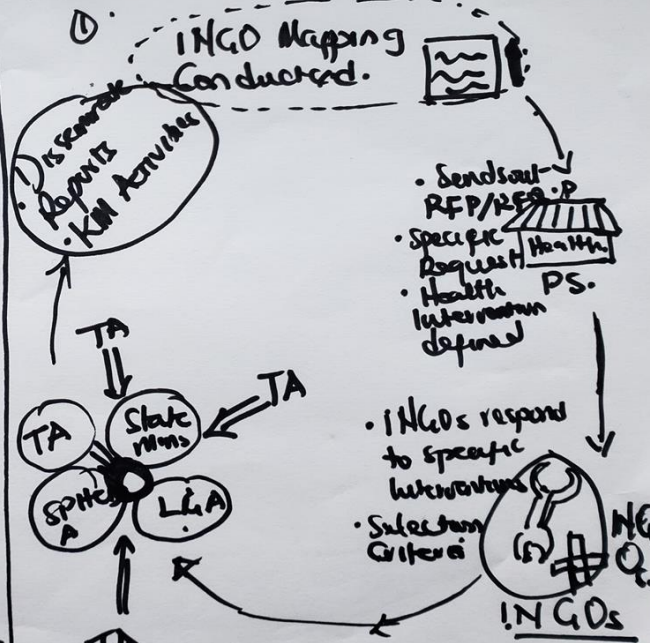 ①.
INGO Mapping
Conducted.
• Disseminate
Reports
• KM Activities
• Sends out
RFP/
• Specific
Request
• Health
Intervention
defined
Health
PS.
TA
TA
TA
State
LGA
A
• INGOs respond
to specific
Interventions
• Selection
Criteria
INGOs